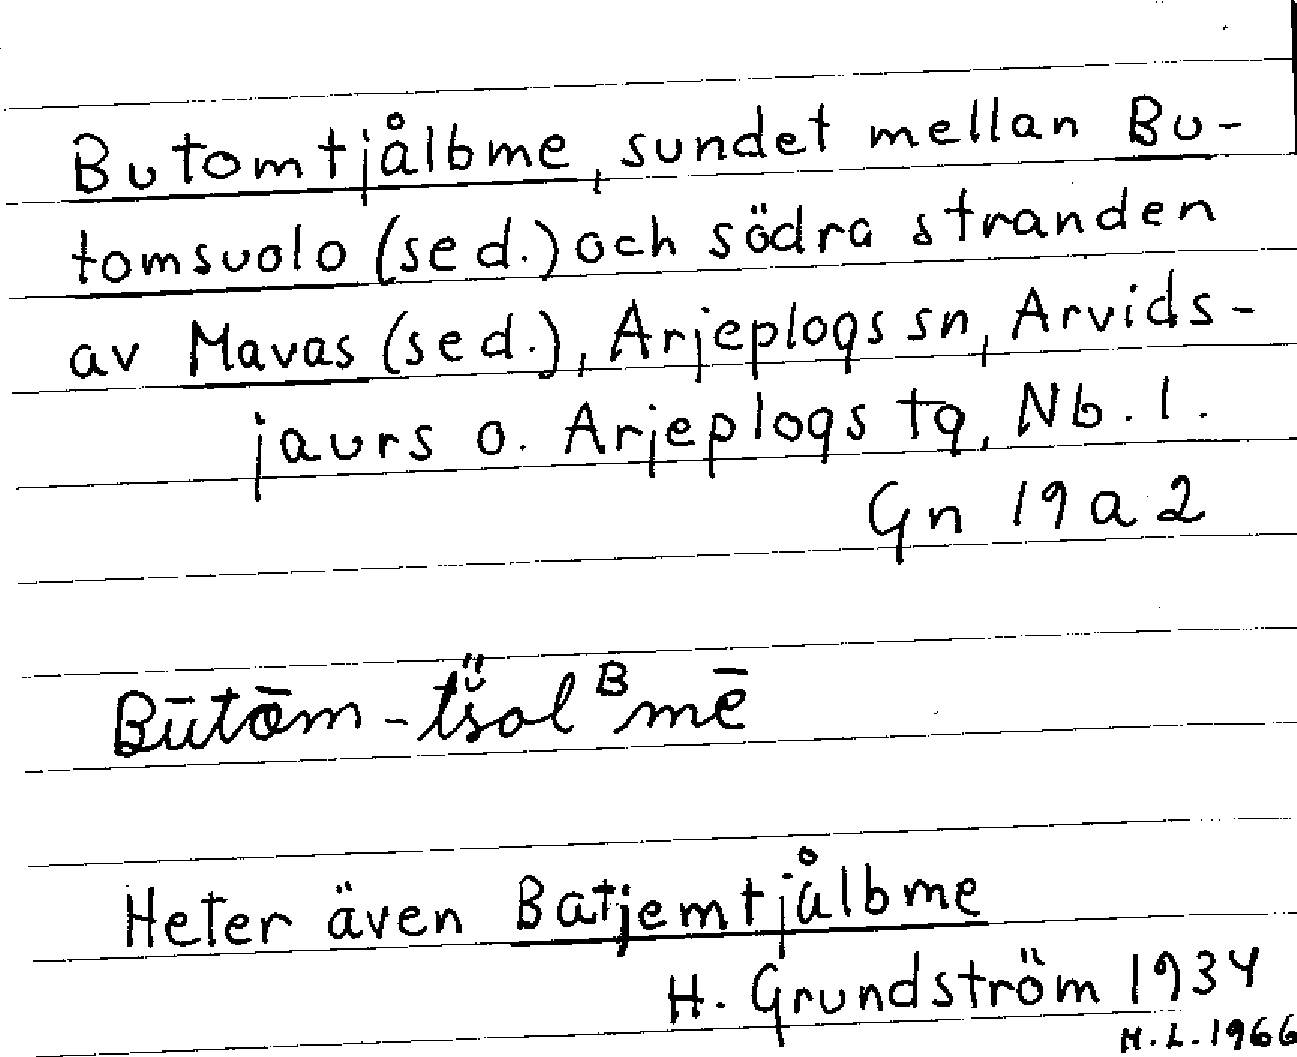 Butomtjålbme, sundet mellan Bu-
tomsuolo (se d.) och södra stranden
av Mavas (se d.), Arjeplogs sn, Arvids-
jaurs o. Arjeplogs tg, Nb. l.
Gn 19 a 2
Būtōm-tšolᴮmē
Heter även Batjemtjålbme
H. Grundström 1934
H.L. 1966